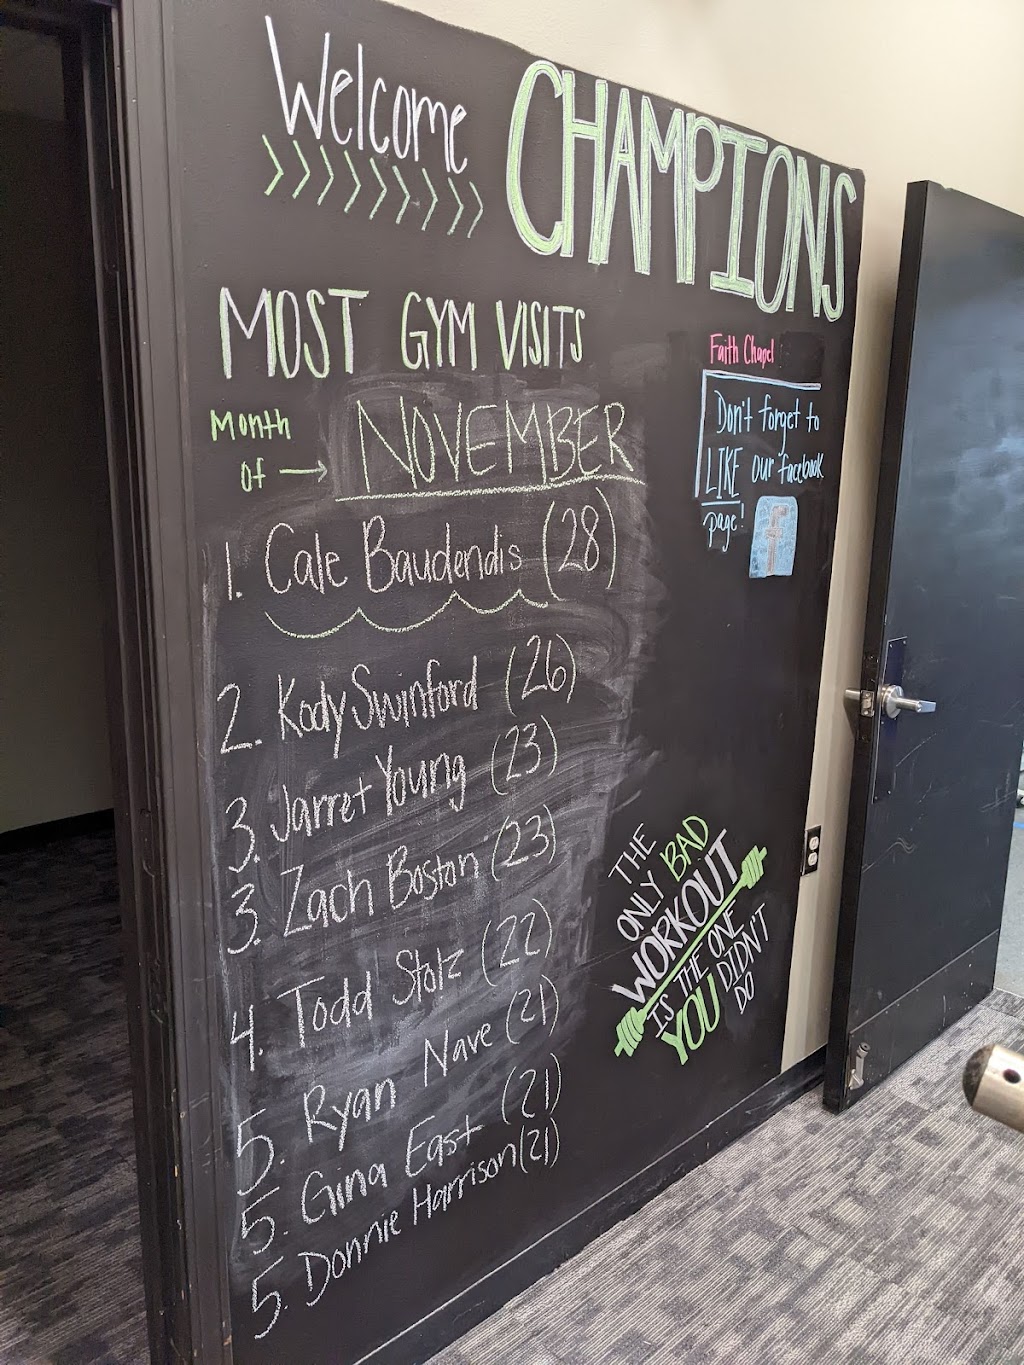 Welcome
CHAMPIONS
>>>>>>>>>
MOST GYM VISITS
Month
of → NOVEMBER
1. Cale Baudendis (28)
2. Kody Swinford (26)
3. Jarret Young (23)
3. Zach Boston (23)
4. Todd Stolz (22)
5. Ryan Nave (21)
5. Gina East (21)
5. Donnie Harrison (21)
Faith Chapel
Don't forget to
LIKE our facebook
page! f
THE
ONLY BAD
WORKOUT
IS THE ONE
YOU DIDN'T
DO